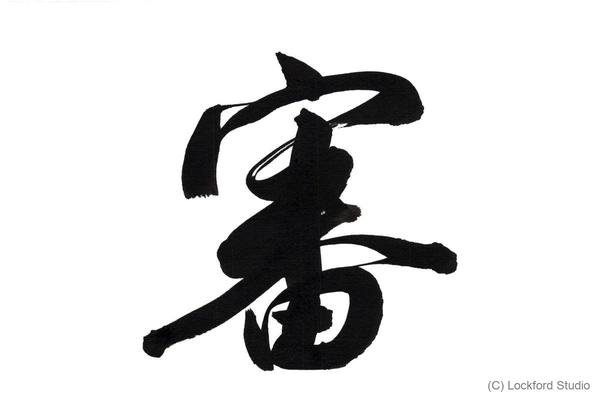 審
(C) Lockford Studio